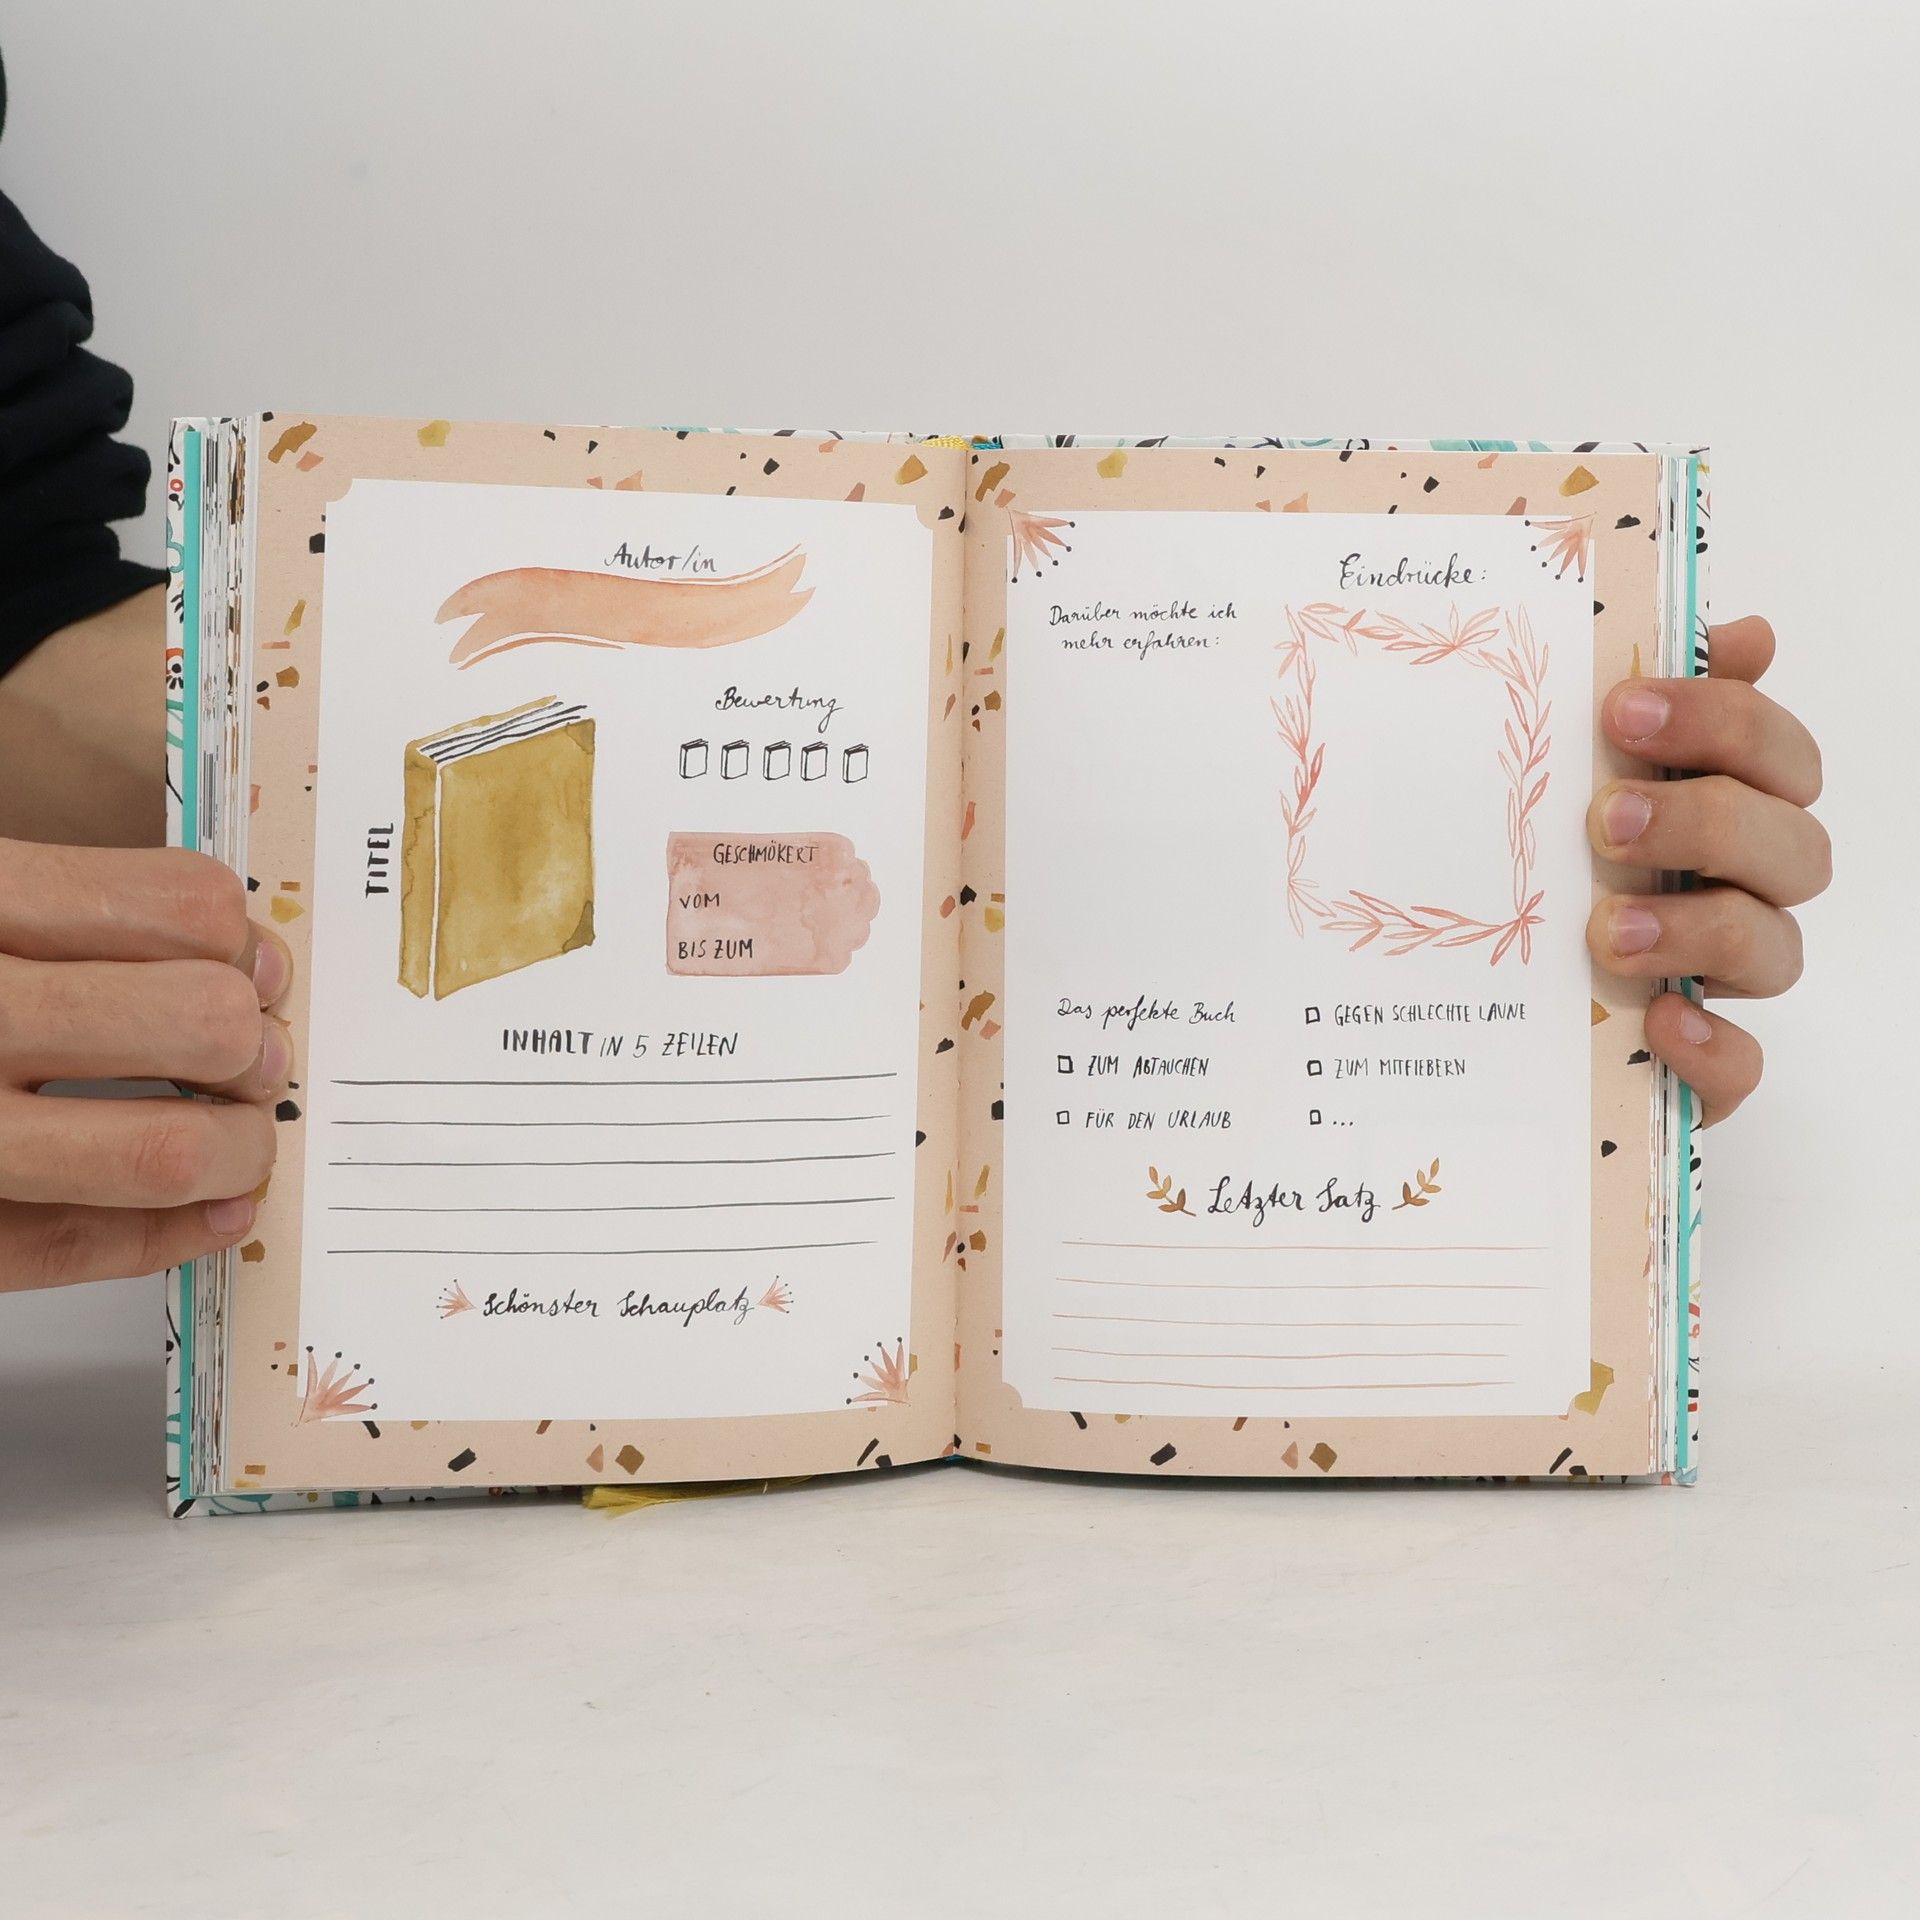 Autor/in
Bewertung
TITEL
GESCHMÖKERT
VOM
BIS ZUM
INHALT IN 5 ZEILEN
Schönster Schauplatz
Eindrücke:
Darüber möchte ich
mehr erfahren:
Das perfekte Buch
GEGEN SCHLECHTE LAUNE
ZUM ABTAUCHEN
ZUM MITFIEBERN
FÜR DEN URLAUB
...
Letzter Satz